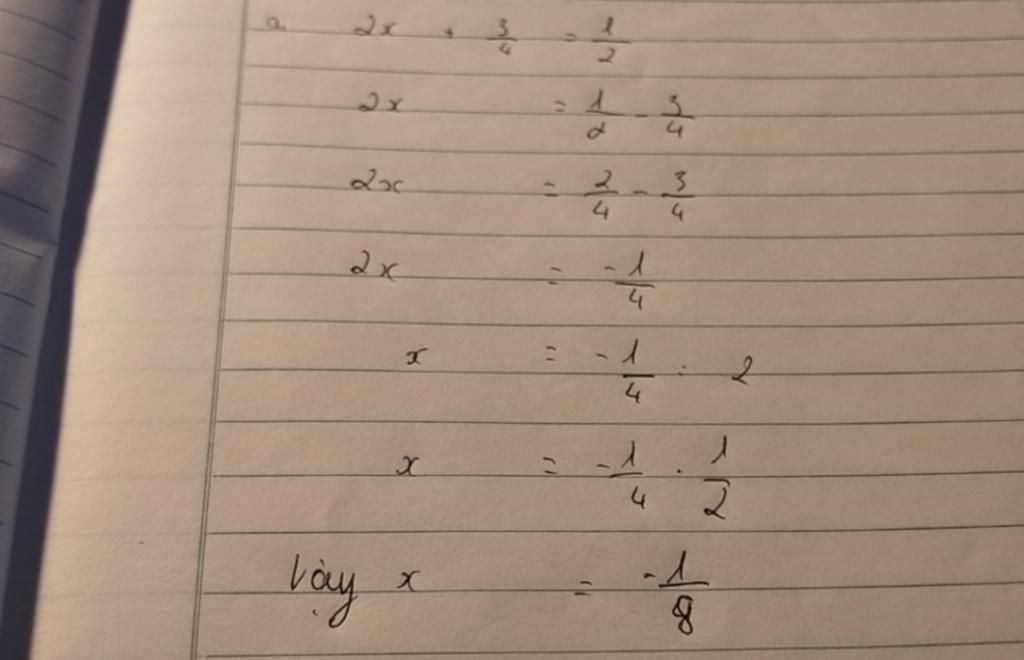 a. 2x + 3/4 = 1/2
2x = 1/2 - 3/4
2x = 2/4 - 3/4
2x = -1/4
x = -1/4 : 2
x = -1/4 . 1/2
Vậy x = -1/8